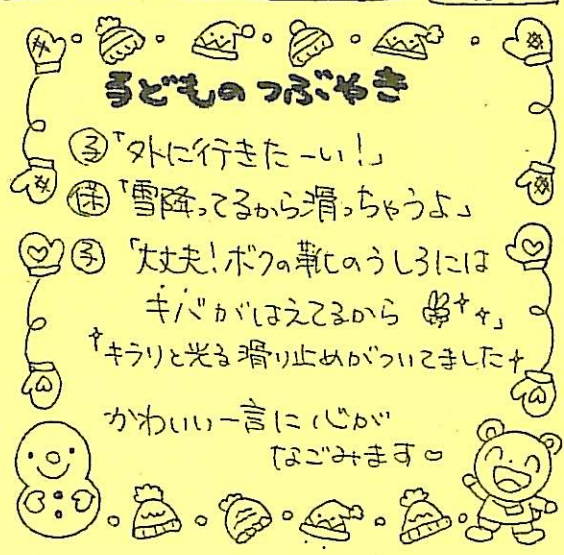 子どものつぶやき
子「外に行きたーい!」
保「雪降ってるから滑っちゃうよ」
子「大丈夫!ボクの靴のうしろには
キバがはえてるから✌」
キラリと光る滑り止めがついてました
かわいい一言に心が
なごみます